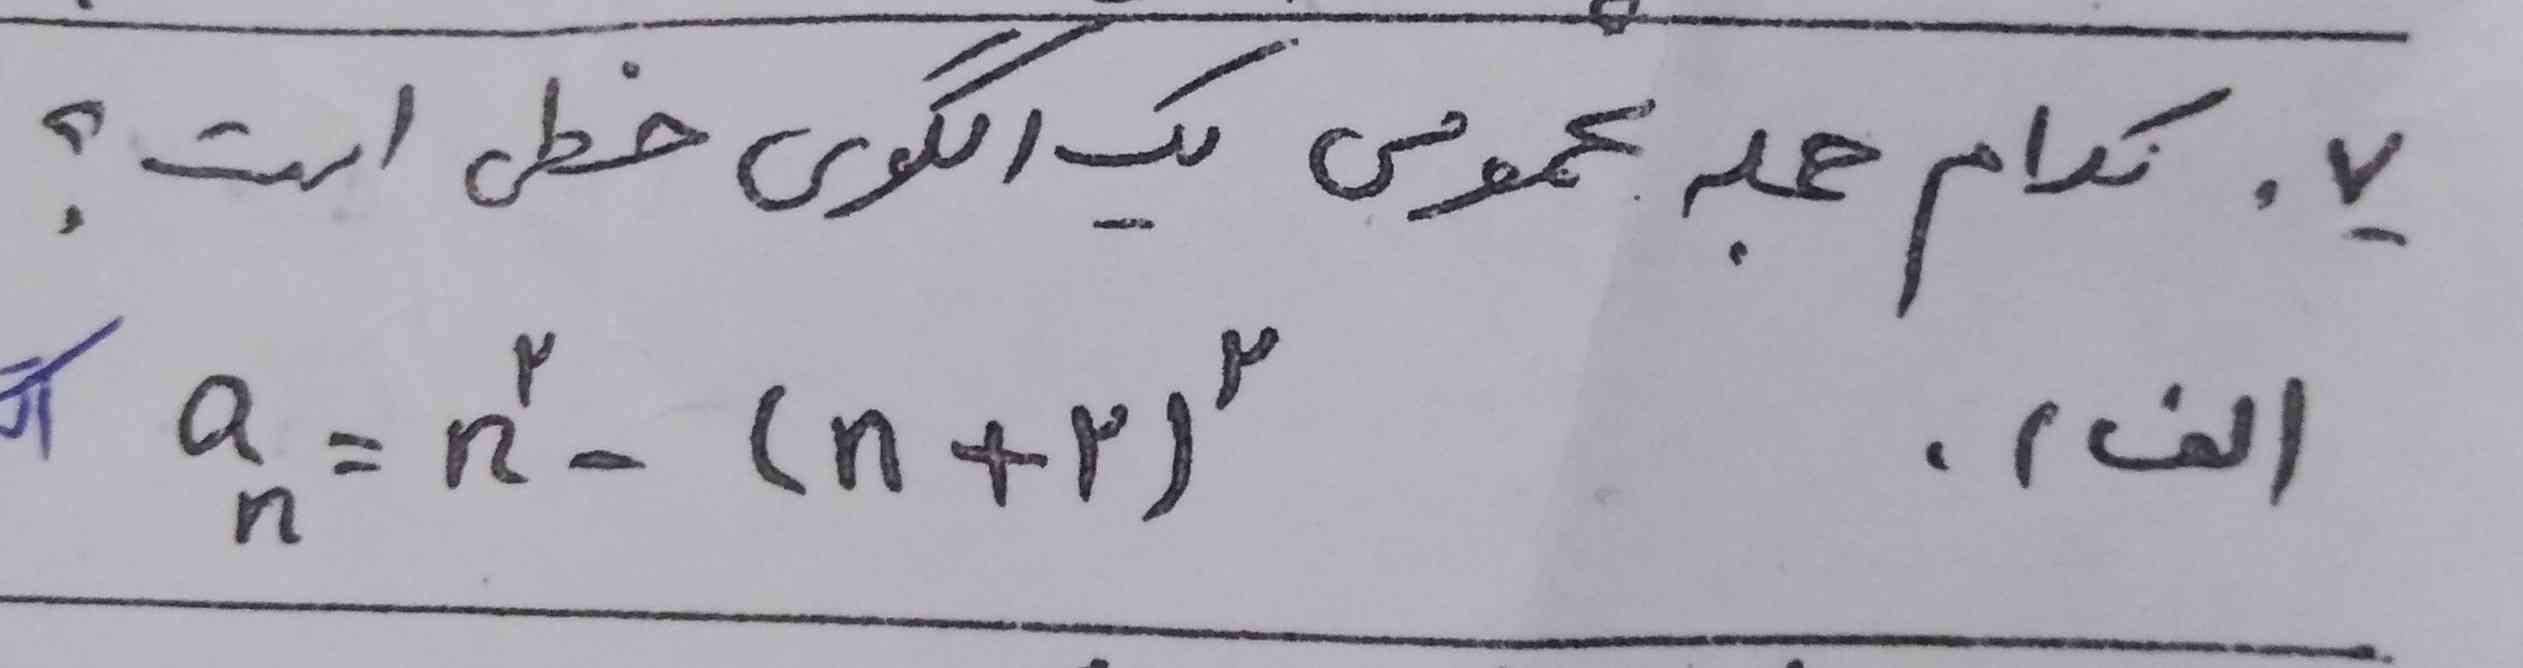 ۷. کدام جمله عمومی یک الگوی خطی است؟
الف). a_n = n^۲ - (n + ۲)^۲